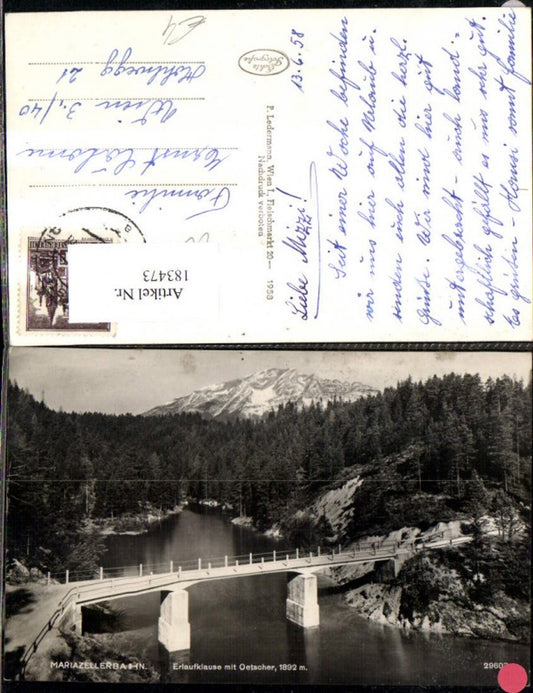 €4
Echte
Fotografie
13.6.58
Liebe Mizzi!
Seit einer Woche befinden
wir uns hier auf Urlaub u.
senden euch allen die herzl.
Grüße. Wir sind hier gut
untergebracht - auch land-
schaftlich gefällt es uns sehr gut.
Hansi samt Familie
F. Ledermann, Wien I, Fleischmarkt 20— 1958
Nachdruck verboten
Familie
Ernst
Wien 3./40
21
Artikel Nr.
183473
MARIAZELLERBAHN.
Erlaufklause mit Oetscher, 1892 m.
2960